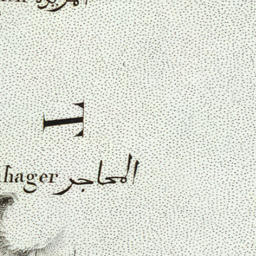 T
hager المحاجر